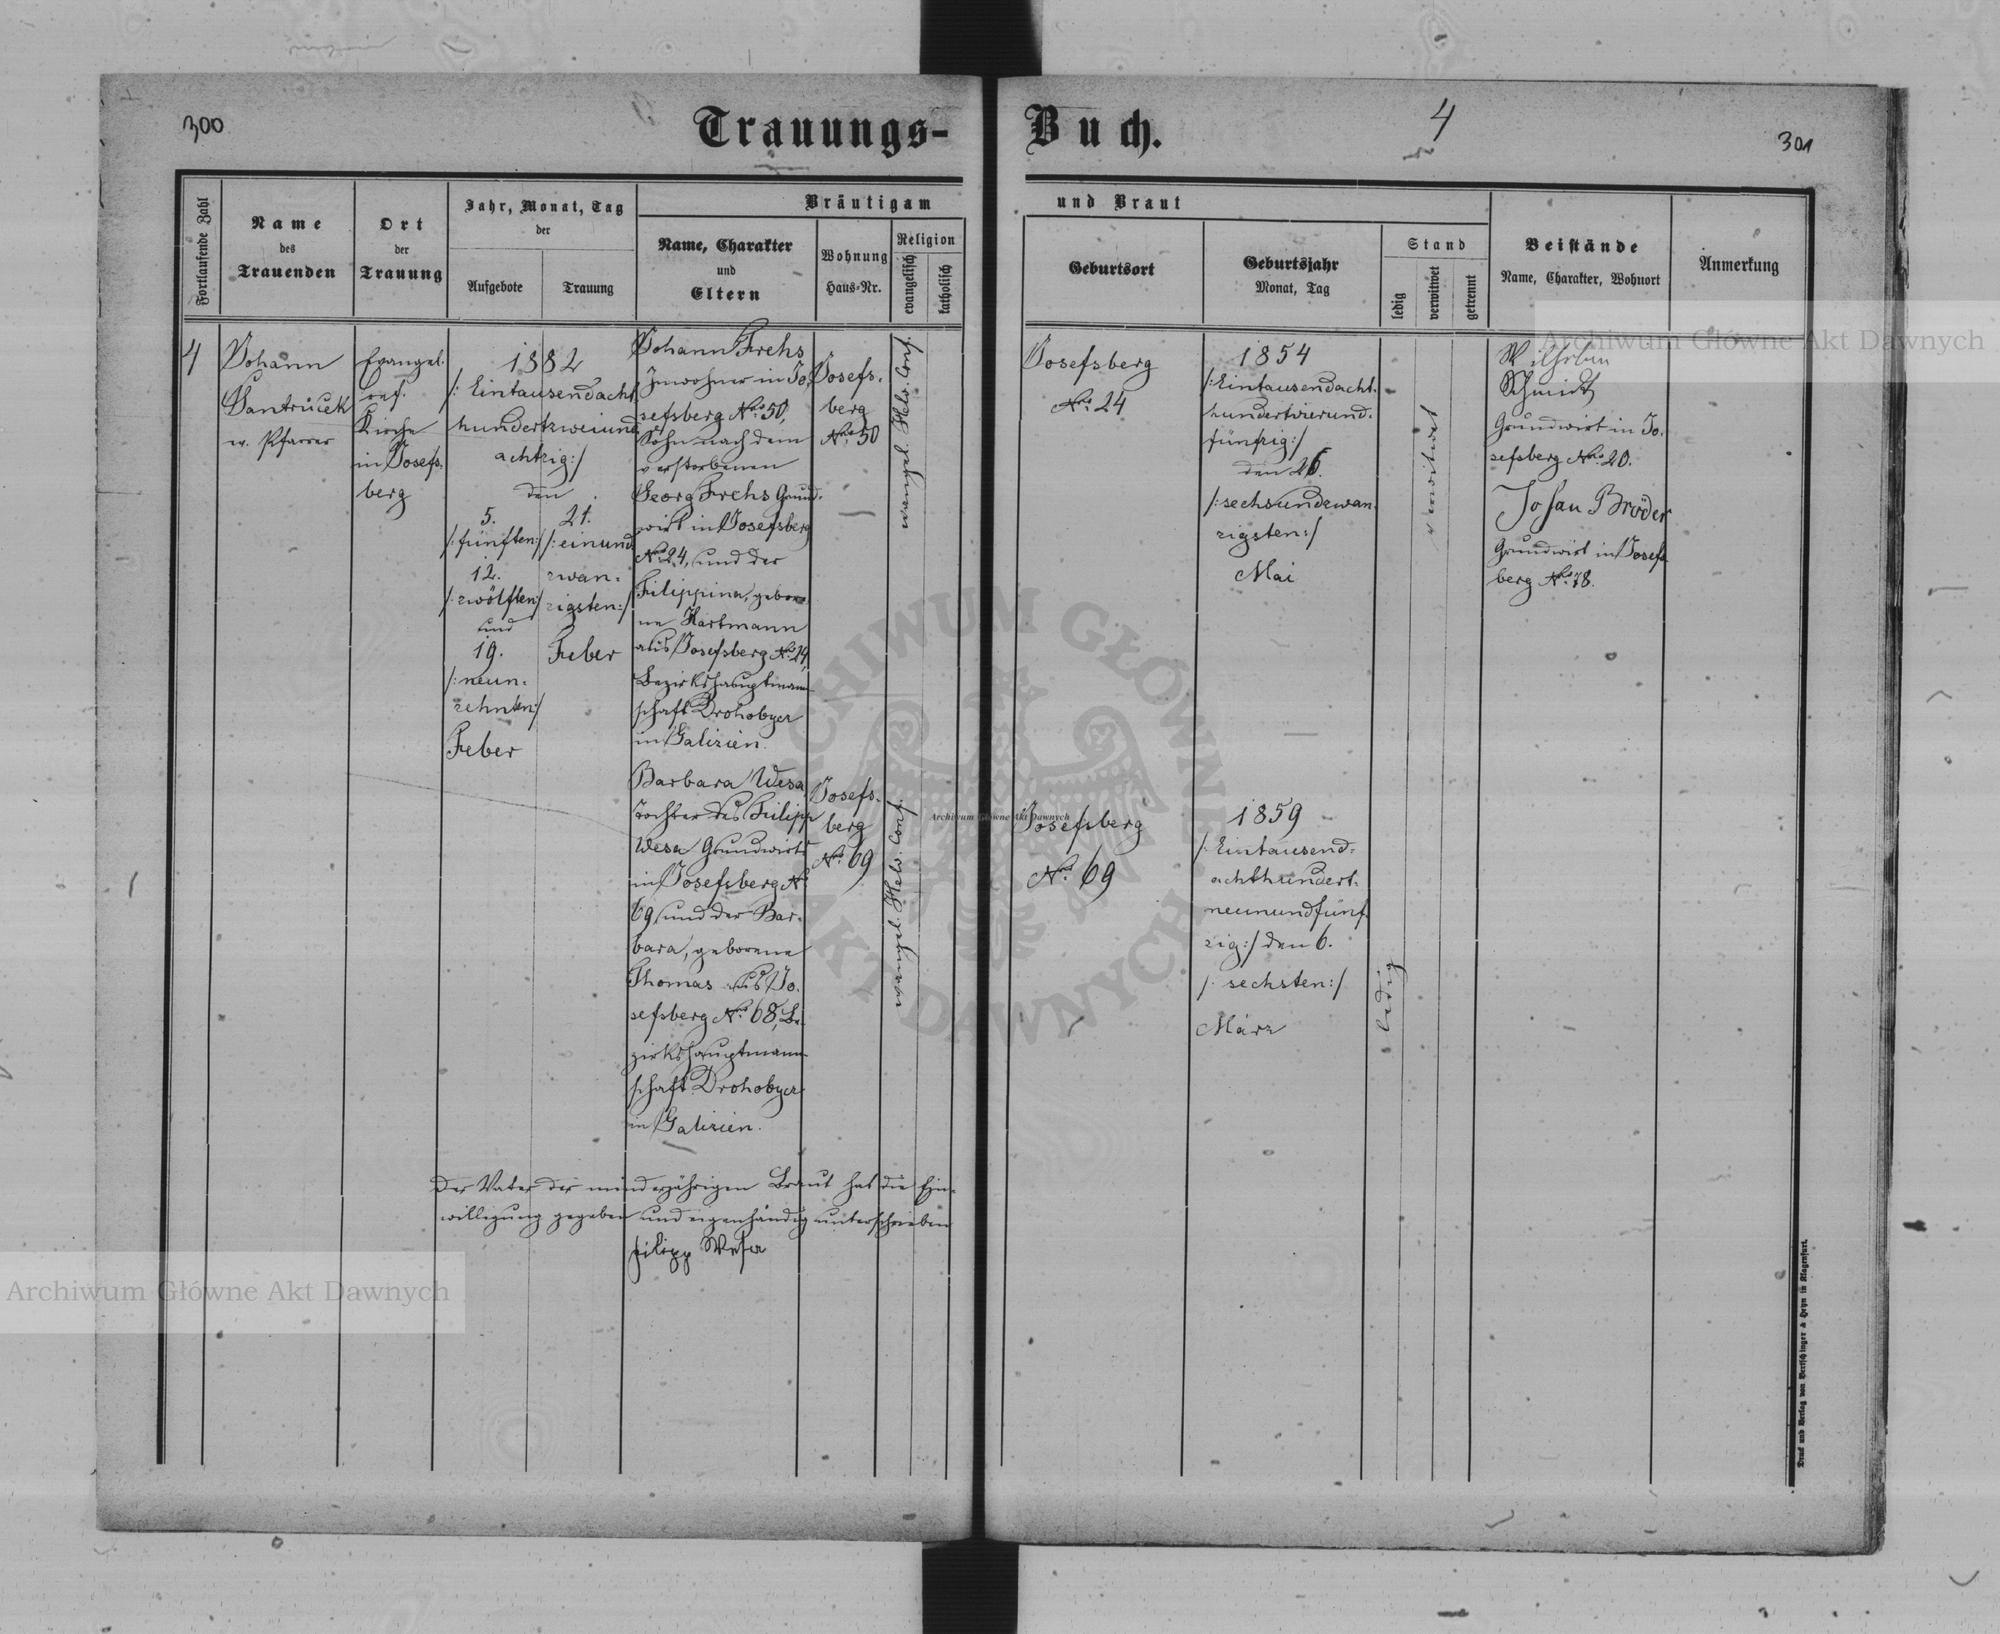 300
Trauungs-
Buch.
4
301
Fortlaufende Zahl
Name
des
Trauenden
Ort
der
Trauung
Jahr, Monat, Tag
der
Aufgebote
Trauung
Bräutigam
Name, Charakter
und
Eltern
Wohnung
Haus-Nr.
Religion
evangelisch
katholisch
und Braut
Geburtsort
Geburtsjahr
Monat, Tag
Stand
ledig
verwitwet
getrennt
Beistände
Name, Charakter, Wohnort
Anmerkung
4
Johann
Santrůček
w. Pfarrer
Evangel.
ref.
Kirche
in Josefs-
berg
1882
/: Eintausendacht
hundertzweiund
achtzig:/
den
5.
/:fünften:/
12.
/:zwölften:/
und
19.
/:neun-
zehnten:/
Feber
21.
/:einund
zwan-
zigsten:/
Feber
Johann Frehs
Inwohner in Jo-
sefsberg No 50,
Sohn nach dem
verstorbenen
Georg Frehs Grund-
wirt in Josefsberg
No 24, und der
Filippina, gebore-
ne Hartmann
aus Josefsberg No 24,
Bezirkshauptmann-
schaft Drohobycz
in Galizien.
Josefs-
berg
No 50
evangel. Helv. Conf.
Josefsberg
No 24
1854
/:Eintausendacht-
hundertvierund-
fünfzig:/
den 26.
/:sechsundzwan-
zigsten:/
Mai
verwitwet
Wilhelm
Schmidt
Grundwirt in Jo-
sefsberg No 20.
Johan Bröder
Grundwirt in Josefs-
berg No 78.
Barbara Wesa,
Tochter des Filipp
Wesa Grundwirts
in Josefsberg No
69 und der Bar-
bara, geborene
Thomas aus Jo-
sefsberg No 68, Be-
zirkshauptmann-
schaft Drohobycz
in Galizien.
Josefs-
berg
No 69
evangel. Helv. Conf.
Josefsberg
No 69
1859
/: Eintausend-
achthundert-
neunundfünf-
zig:/ den 6.
/: sechsten:/
März
ledig
Der Vater der minderjährigen Braut hat die Ein-
willigung gegeben und eigenhändig unterschrieben
Filipp Wesa
Druck und Verlag von Bertschinger & Heyn in Klagenfurt.
Archiwum Główne Akt Dawnych
Archiwum Główne Akt Dawnych
Archiwum Główne Akt Dawnych
ARCHIWUM GŁÓWNE
AKT DAWNYCH